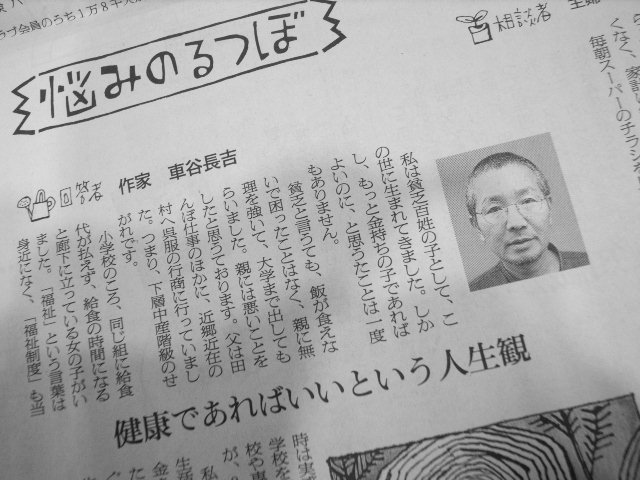 ラブ会員のうち1万8千人
悩みのるつぼ
相談者
主婦
くなく、家計
毎朝スーパーのチラシを
回答者
作家 車谷長吉
私は貧乏百姓の子として、こ
の世に生まれてきました。しか
し、もっと金持ちの子であれば
よいのに、と思うたことは一度
もありません。
貧乏と言うても、飯が食えな
いで困ったことはなく、親に無
理を強いて、大学まで出しても
らいました。親には悪いことを
したと思うております。父は田
んぼ仕事のほかに、近郷近在の
村へ呉服の行商に行っていまし
た。つまり、下層中産階級のせ
がれです。
小学校のころ、同じ組に給食
代が払えず、給食の時間になる
と廊下に立っている女の子がい
ました。「福祉」という言葉は
身近になく、「福祉制度」も当
健康であればいいという人生観
時は実
学校を
校や専
が、
私
生活
金
た